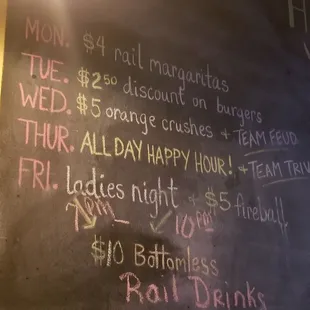 MON. $4 rail margaritas
TUE. $2.50 discount on burgers
WED. $5 orange crushes + TEAM FEUD
THUR. ALL DAY HAPPY HOUR! + TEAM TRIV
FRI. ladies night + $5 fireball
7pm - 10pm
$10 Bottomless
Rail Drinks